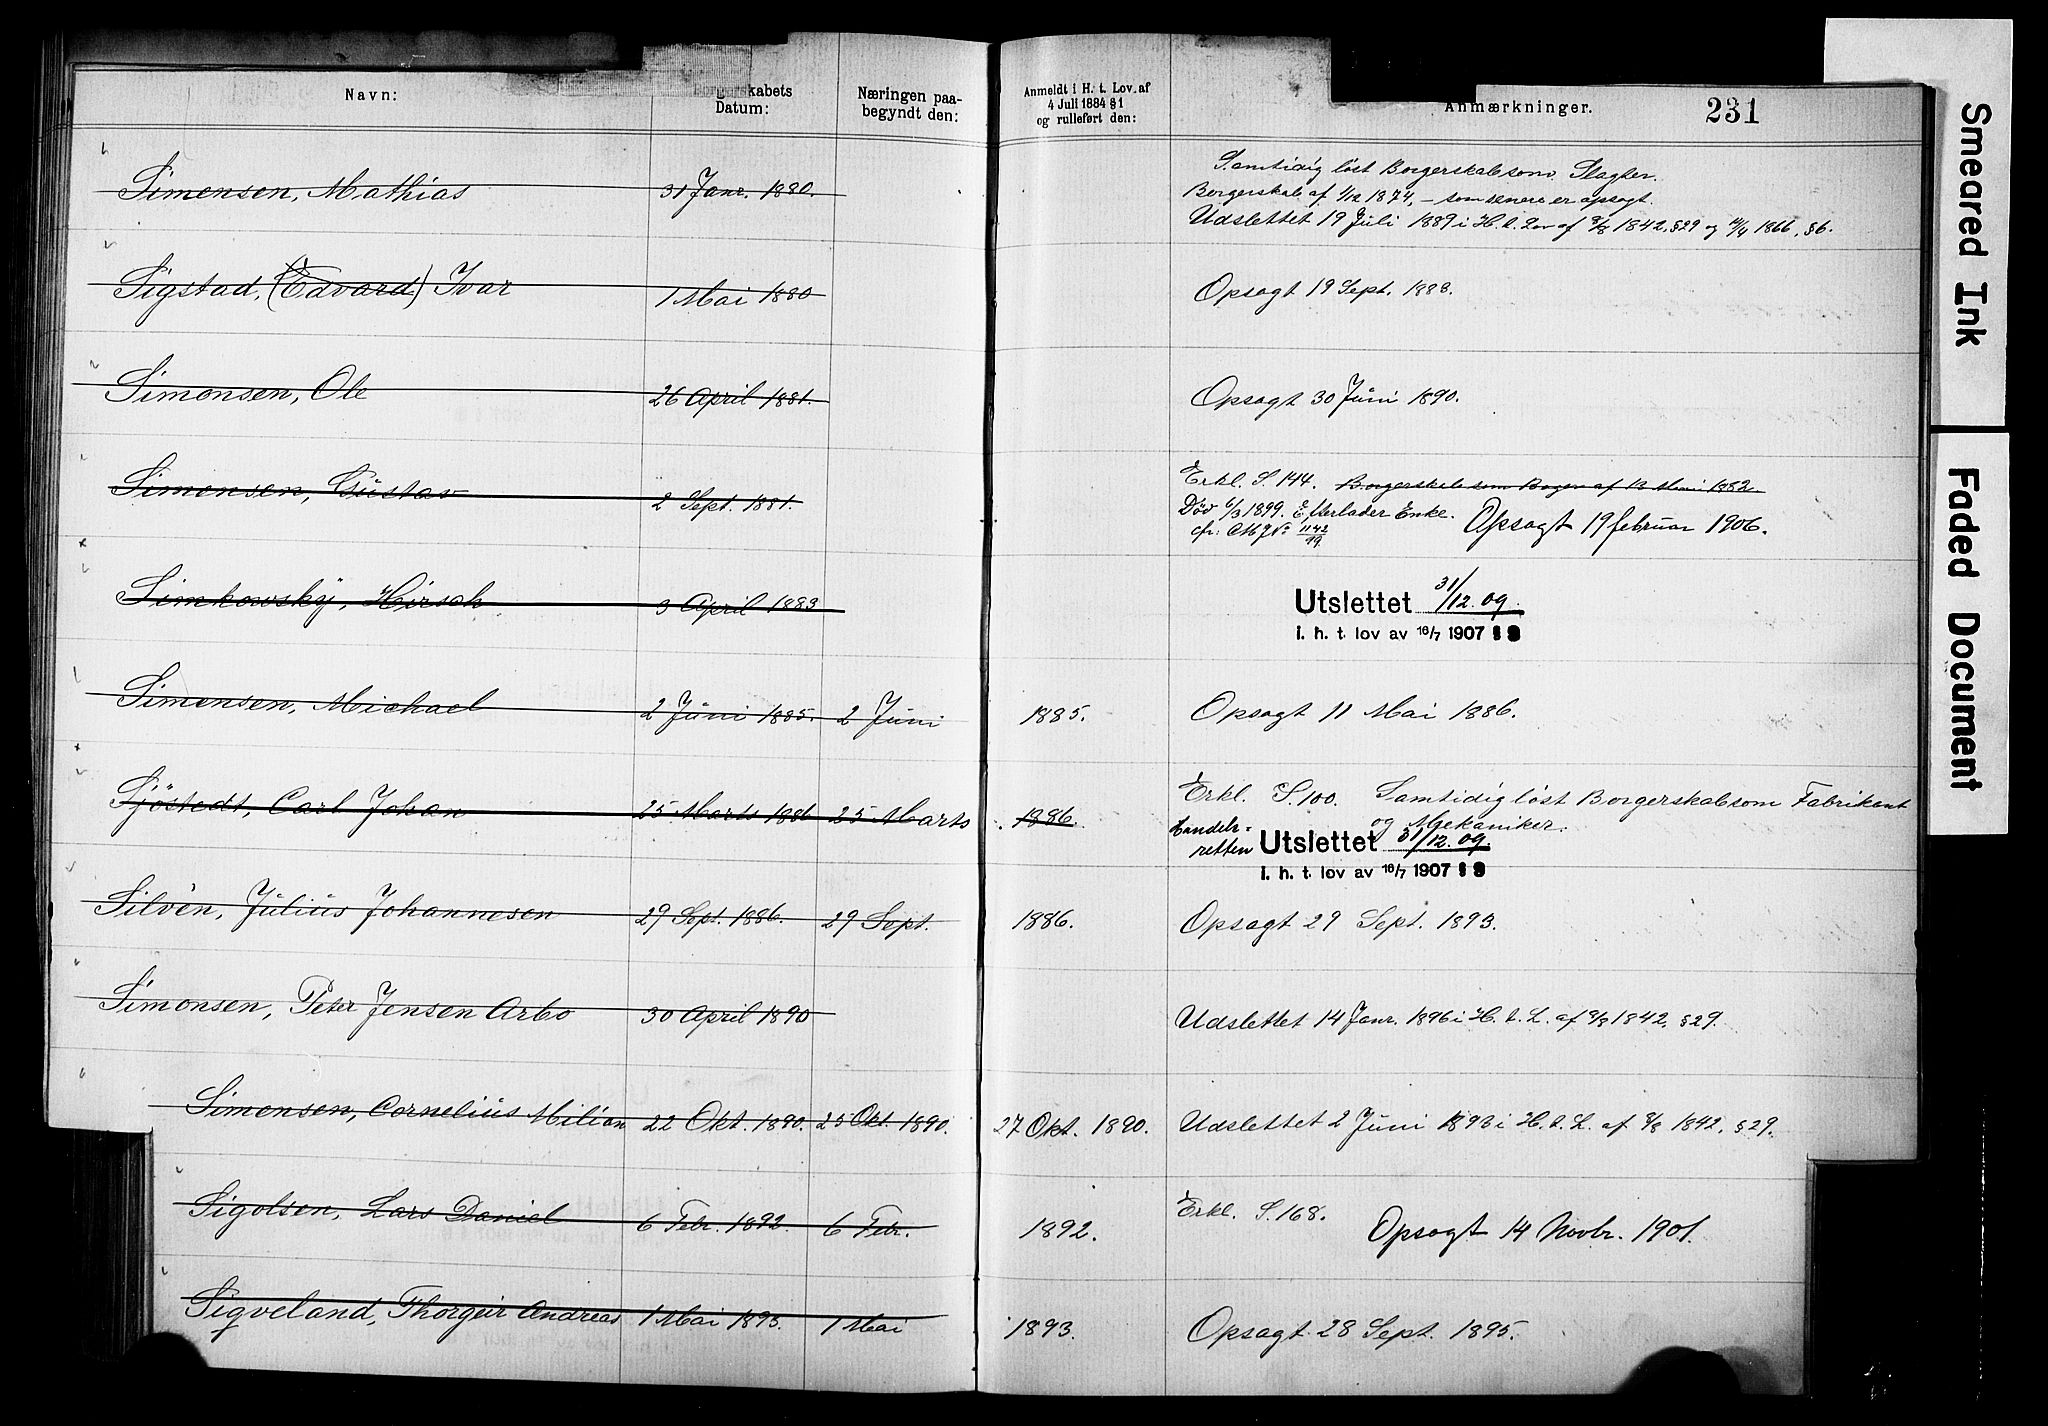 Navn:
Borgerskabets
Datum:
Næringen paa-
begyndt den:
Anmeldt i H. t. Lov. af
4 Juli 1884 § 1
og rulleført den:
Anmærkninger.
231
Simensen, Mathias 31 Janr. 1880.
Samtidig løst Borgerskab som Slagter.
Borgerskab af 1/12 1874, – som senere er opsagt.
Udslettet 19 Juli 1889 i H. t. Lov af 8/8 1842, §29 og 14/4 1866, §6.
Sigstad, (Edvard) Ivar 1 Mai 1880 Opsagt 19 Sept. 1888.
Simonsen, Ole 26 April 1881. Opsagt 30 Juni 1890.
Simensen, Gustav 2 Sept. 1881.
Erkl. S. 144. Borgerskab som Bager af 13 Mai 1882.
Død 6/3 1899. Efterlader Enke. Opsagt 19 februar 1906.
cfr. No 1142/99
Simkowsky, Hirsch 3 April 1883
Utslettet 31/12.09.
i. h. t. lov av 16/7 1907 § 8
Simensen, Michael 2 Juni 1885. 2 Juni 1885. Opsagt 11 Mai 1886.
Sjöstedt, Carl Johan 25 Marts 1886 25 Marts 1886.
Erkl. S. 100. Samtidig løst Borgerskab som Fabrikant
og Mekaniker.
Handels-
retten
Utslettet 31/12.09.
i. h. t. lov av 16/7 1907 § 8
Silvén, Julius Johannesen 29 Sept. 1886. 29 Sept. 1886. Opsagt 29 Sept. 1893.
Simonsen, Peter Jensen Arbo 30 April 1890 Udslettet 14 Janr. 1896 i H. t. L. af 8/8 1842, §29.
Simensen, Cornelius Milian 22 Okt. 1890. 25 Okt. 1890. 27 Okt. 1890. Udslettet 2 Juni 1893 i H. t. L. af 8/8 1842, §29.
Sigolsen, Lars Daniel 6 Febr. 1892. 6 Febr. 1892. Erkl. S. 168. Opsagt 14 Novbr. 1901.
Sigveland, Thorgeir Andreas 1 Mai 1893. 1 Mai 1893. Opsagt 28 Sept. 1895.
Smeared Ink
Faded Document